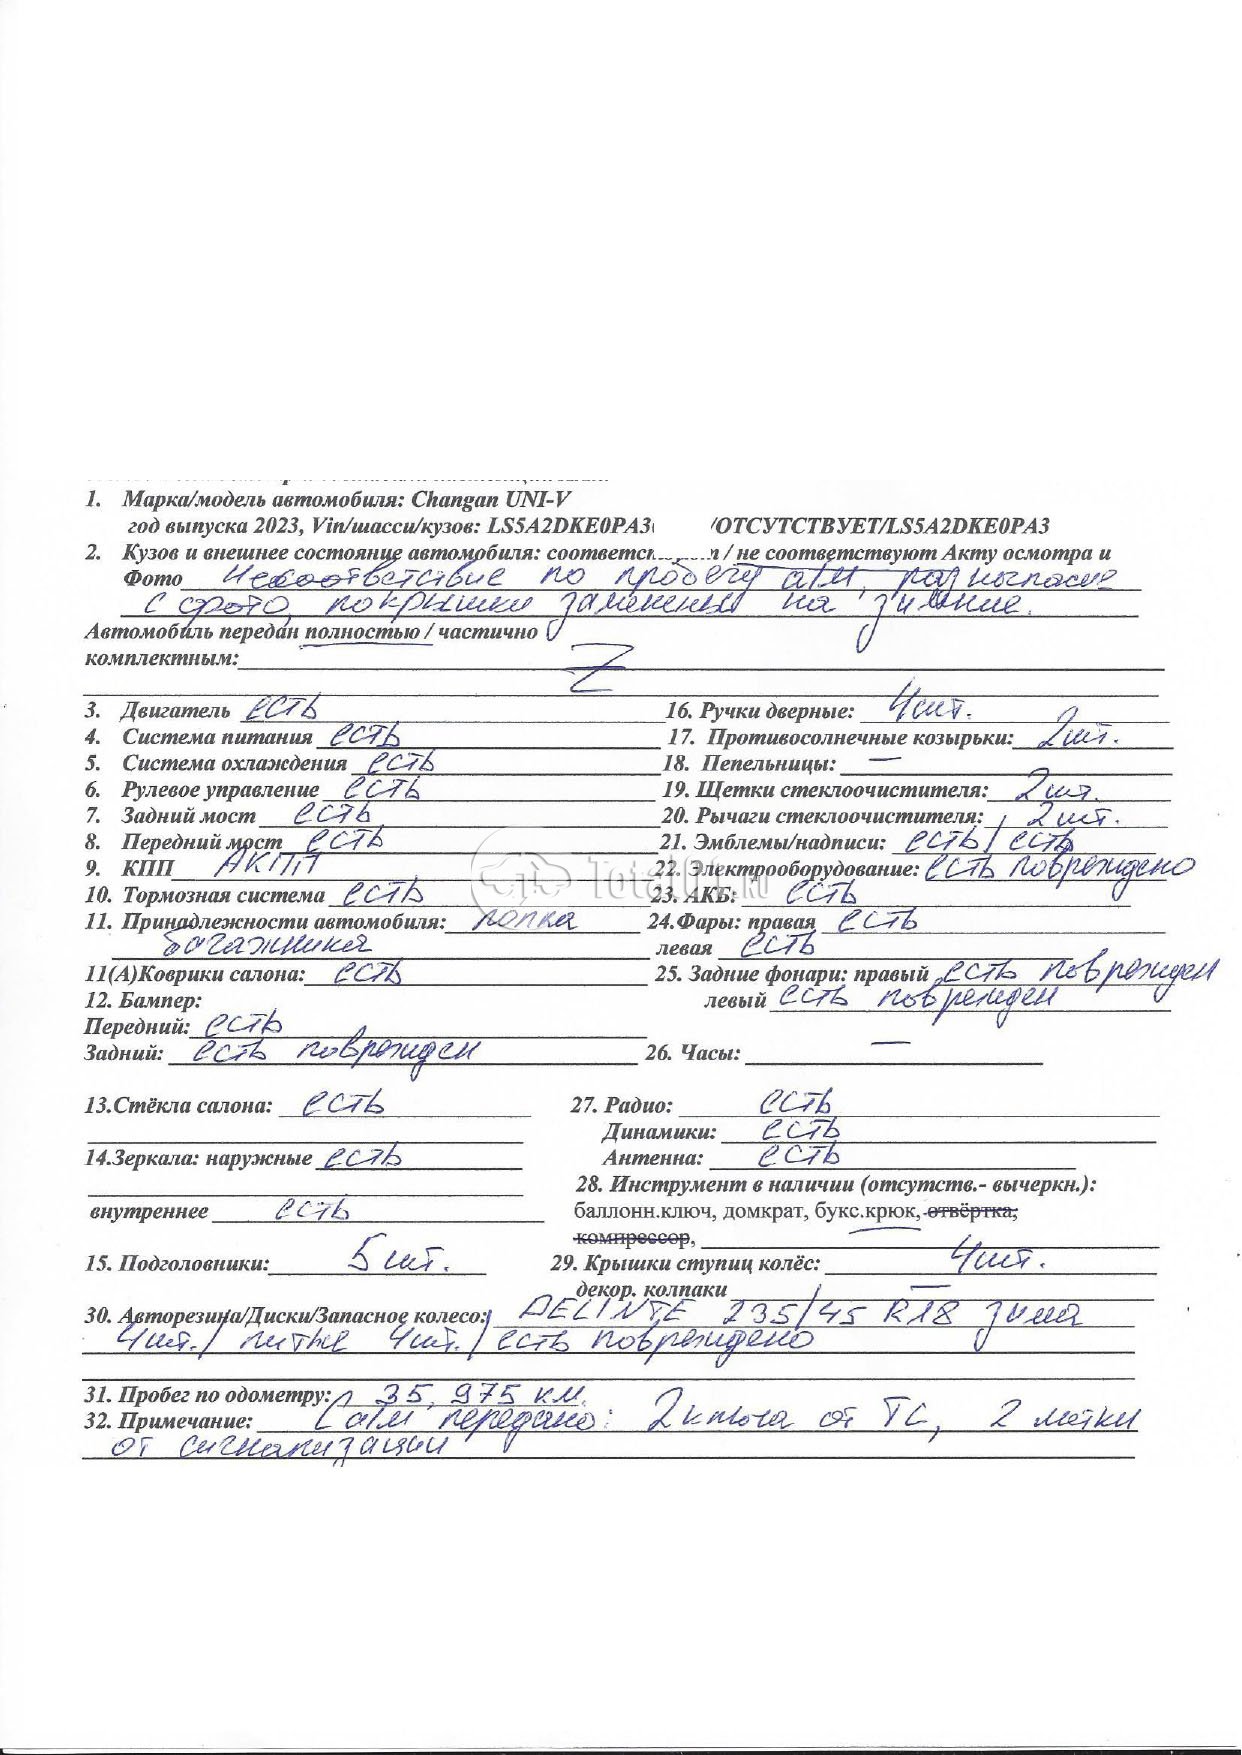 1. Марка/модель автомобиля: Changan UNI-V
год выпуска 2023, Vin/шасси/кузов: LS5A2DKE0PA3 /ОТСУТСТВУЕТ/LS5A2DKE0PA3
2. Кузов и внешнее состояние автомобиля: / не соответствуют Акту осмотра и
Фото Несоответствие по пробегу а/м, разногласие
с фото, покрышки заменены на зимние.
Автомобиль передан полностью / частично
комплектным: Z
3. Двигатель есть 16. Ручки дверные: 4шт.
4. Система питания есть 17. Противосолнечные козырьки: 2шт.
5. Система охлаждения есть 18. Пепельницы: —
6. Рулевое управление есть 19. Щетки стеклоочистителя: 2шт.
7. Задний мост есть 20. Рычаги стеклоочистителя: 2шт.
8. Передний мост есть 21. Эмблемы/надписи: есть/есть
9. КПП АКПП 22. Электрооборудование: есть повреждено
10. Тормозная система есть 23. АКБ: есть
11. Принадлежности автомобиля: полка 24.Фары: правая есть
багажника левая есть
11(А)Коврики салона: есть 25. Задние фонари: правый есть поврежден
12. Бампер: левый есть поврежден
Передний: есть
Задний: есть поврежден 26. Часы: —
13.Стёкла салона: есть 27. Радио: есть
Динамики: есть
14.Зеркала: наружные есть Антенна: есть
28. Инструмент в наличии (отсутств.- вычеркн.):
внутреннее есть баллонн.ключ, домкрат, букс.крюк, отвёртка,
компрессор,
15. Подголовники: 5 шт. 29. Крышки ступиц колёс: 4шт.
декор. колпаки —
30. Авторезина/Диски/Запасное колесо: DELINTE 235/45 R18 зима
4шт./ литые 4шт./ есть повреждено
31. Пробег по одометру: 35,975 км.
32. Примечание: С а/м передано: 2 ключа от ТС, 2 метки
от сигнализации
Total01.RU